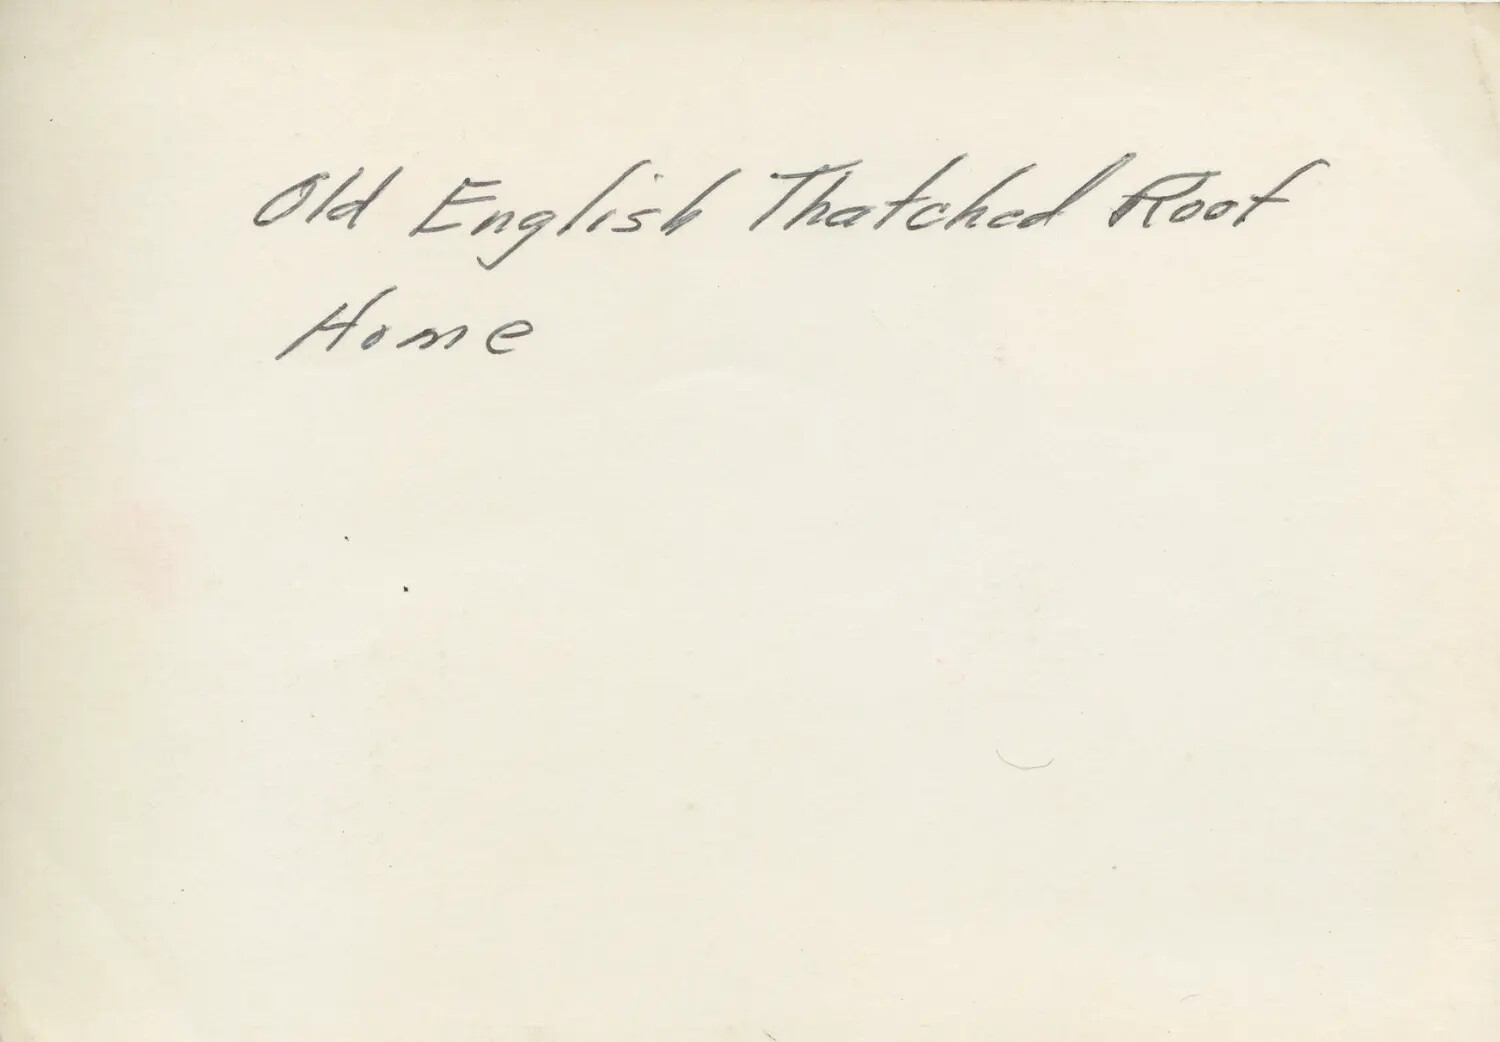 Old English Thatched Roof
Home